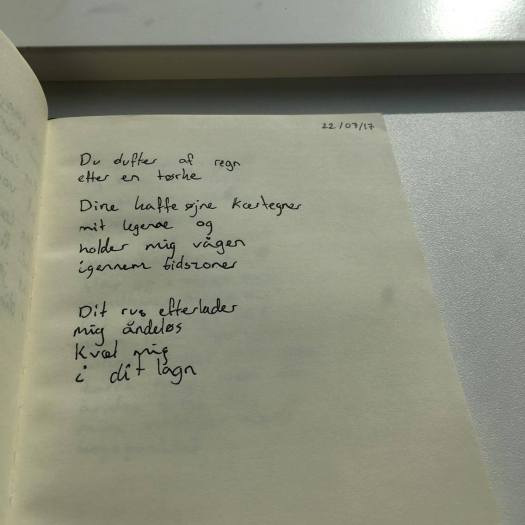 22/07/17
Du dufter af regn
efter en tørke
Dine kaffe øjne kærtegner
mit legeme og
holder mig vågen
igennem tidszoner
Dit rus efterlader
mig åndeløs
Kvæl mig
i dit lagn